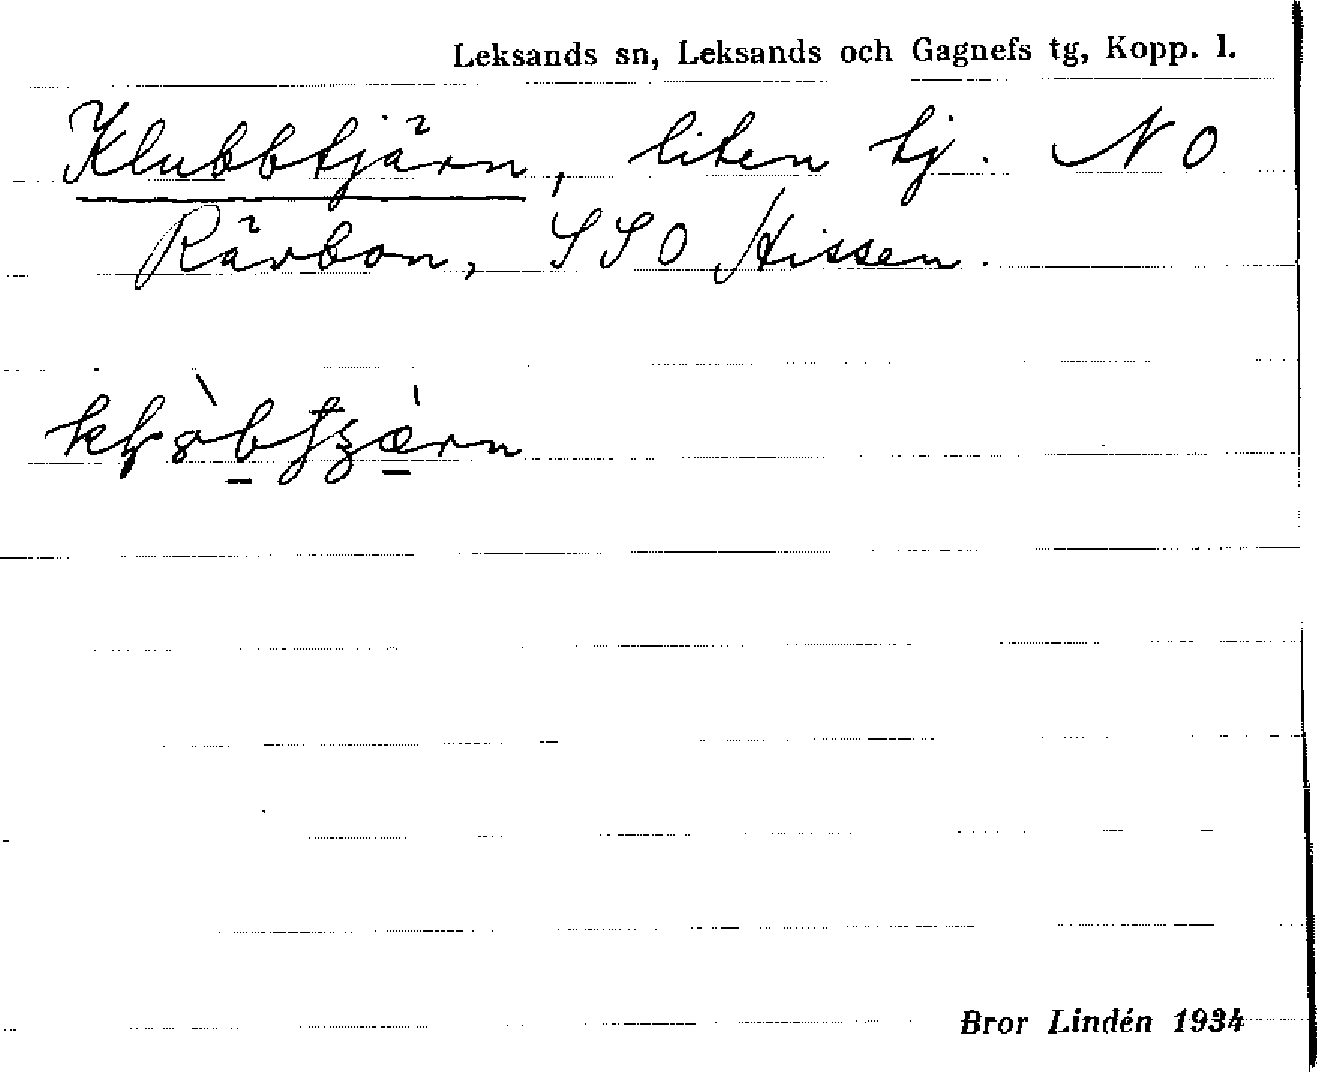 Leksands sn, Leksands och Gagnefs tg, Kopp. l.
Klubbtjärn, liten tj. NO
Rävbon, SSO Hissen.
Bror Lindén 1934